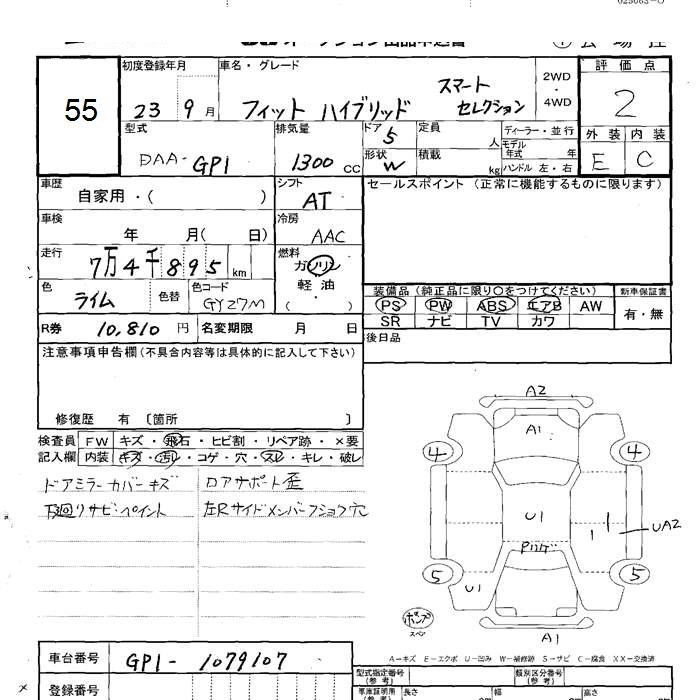 初度登録年月
車名・グレード
2WD
・
4WD
評価点
55
23 9月
フィット ハイブリッド
スマート
セレクション
2
型式
DAA-GP1
排気量
1300 CC
ドア
5
定員
人
ディーラー・並行
モデル
年式 年
外装 内装
E C
形状
W
積載
kg
ハンドル 左・右
車歴
自家用・( )
シフト
AT
セールスポイント (正常に機能するものに限ります)
車検
年 月( 日)
冷房
AAC
走行
7万4千895km
燃料
ガソリン
軽油
( )
色
ライム
色替
色コード
GY27M
装備品 (純正品に限り○をつけてください)
新車保証書
PS PW ABS エアB AW
有・無
SR ナビ TV カワ
R券 10,810円
名変期限 月 日
後日品
注意事項申告欄(不具合内容等は具体的に記入して下さい)
修復歴 有 〔箇所 〕
検査員
記入欄
FW キズ・飛石・ヒビ割・リペア跡・×要
内装 キズ・汚レ・コゲ・穴・スレ・キレ・破レ
ドアミラーカバーキズ
ロアサポート歪
下廻リサビ・ペイント
左Rサイドメンバー
穴
A2
A1
4 4
U1
UA2
5 5
U1
A1
スペア
A-キズ E-エクボ U-凹み W-補修跡 S-サビ C-腐食 XX-交換済
車台番号
GP1-1079107
型式指定番号
(参考)
類別区分番号
(参考)
登録番号
長さ 幅 高さ